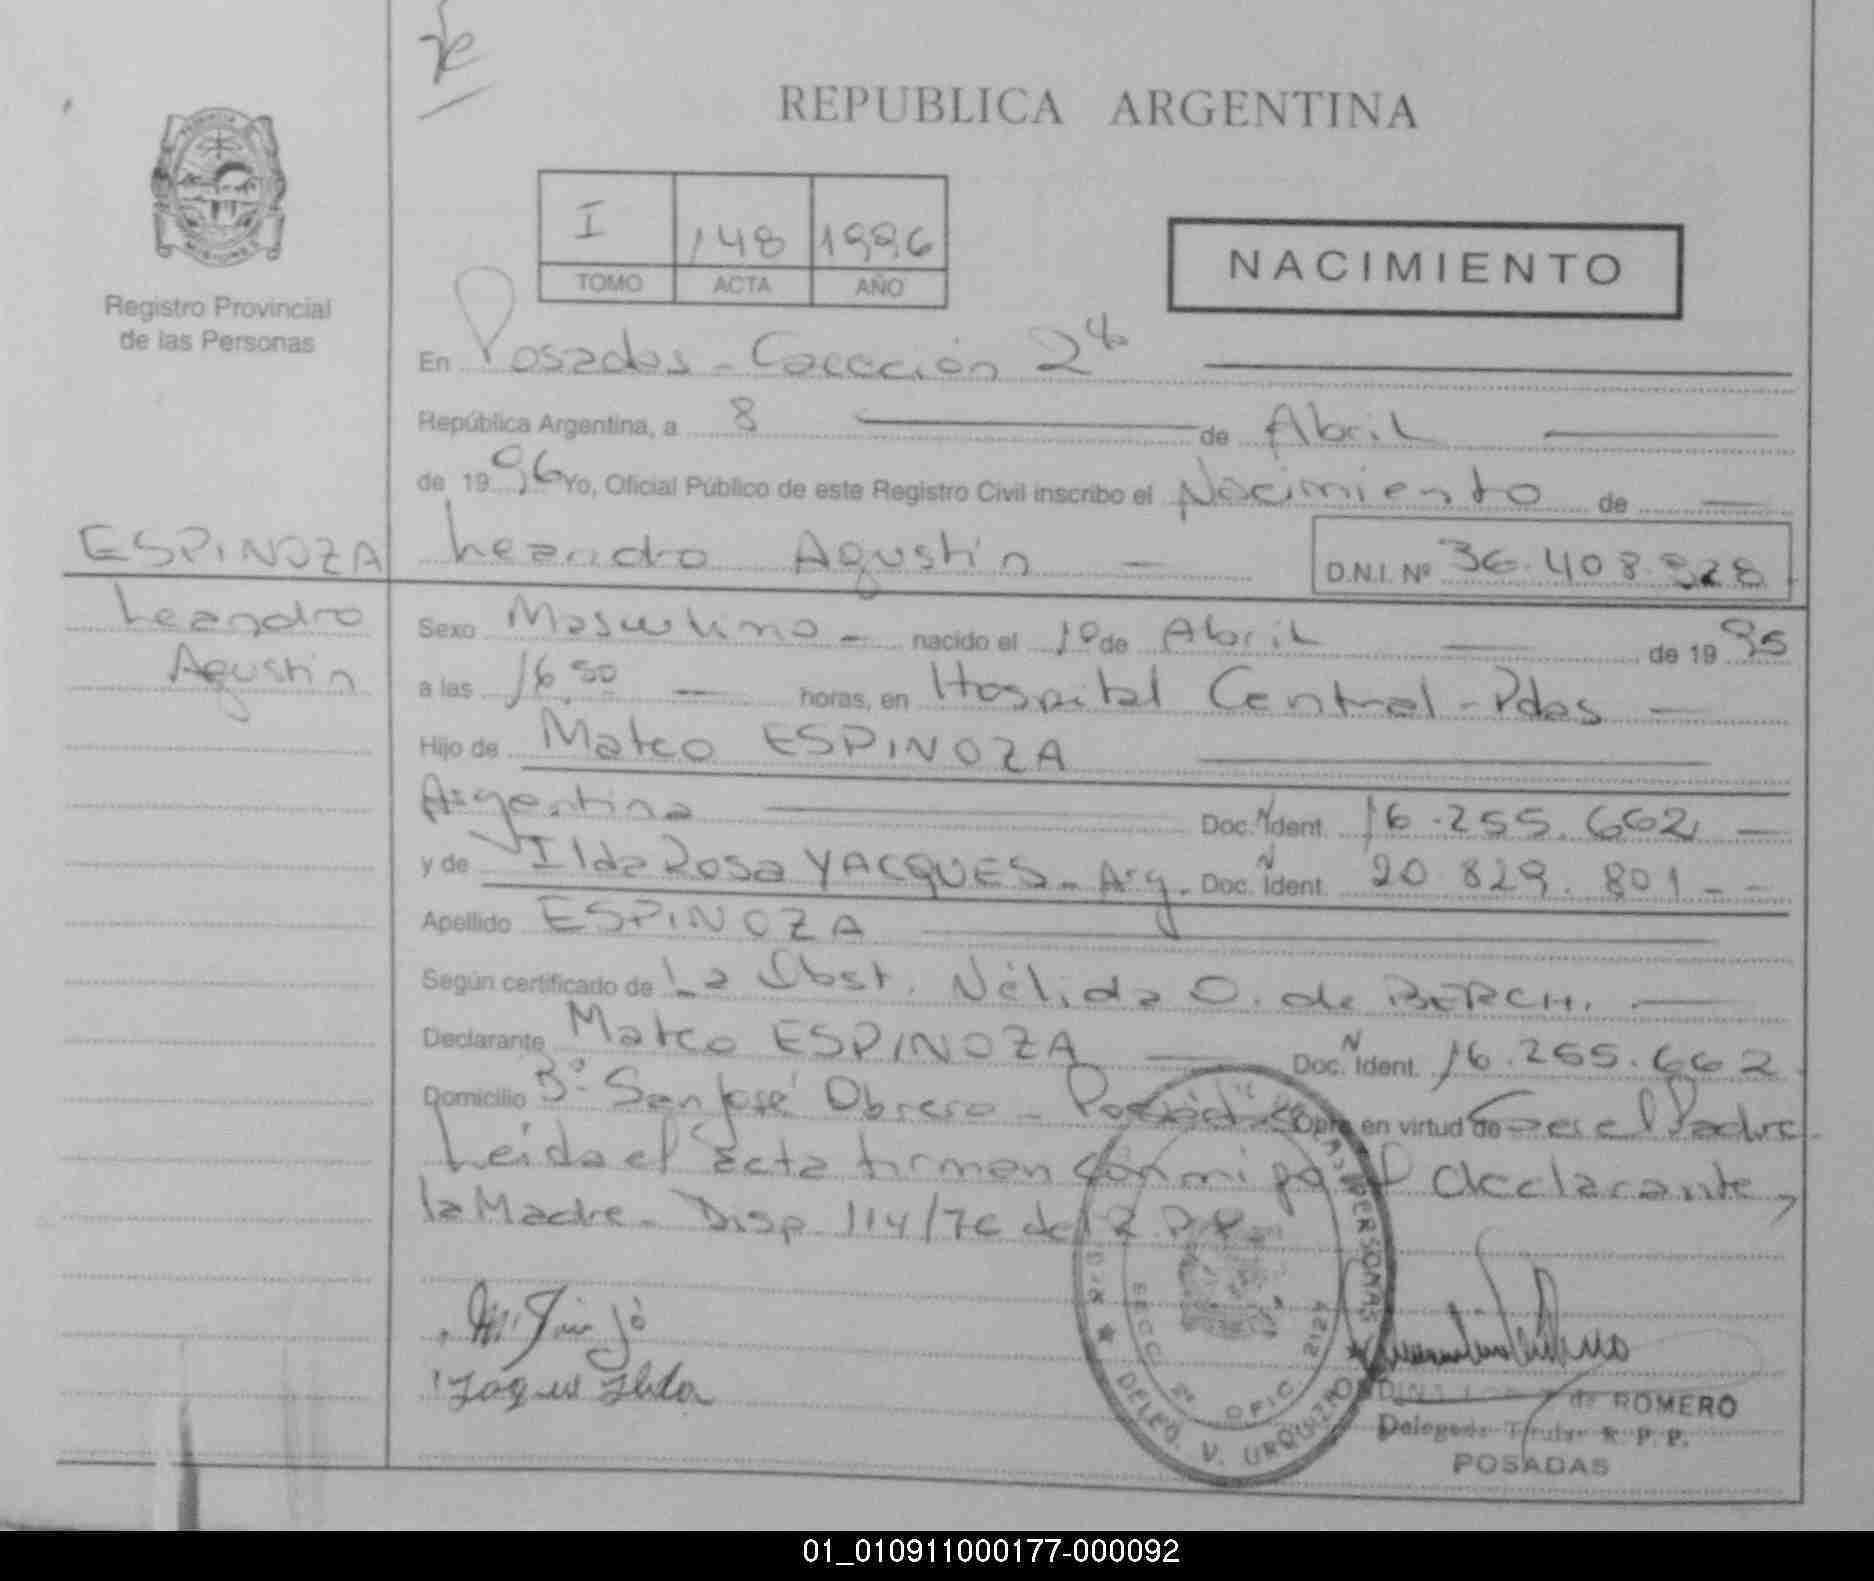 REPUBLICA ARGENTINA
I 148 1996
TOMO ACTA AÑO
NACIMIENTO
Registro Provincial
de las Personas
En Posadas - Sección 2da
República Argentina, a 8 de Abril
de 1996 Yo, Oficial Público de este Registro Civil inscribo el Nacimiento de
ESPINOZA Leandro Agustín D.N.I. Nº 36.408.928
Leandro
Agustín
Sexo Masculino - nacido el 1º de Abril de 1995
a las 16 50 horas, en Hospital Central - Pdas
Hijo de Mateo ESPINOZA
Argentina Doc. N Ident. 16.255.662
y de Ilda Rosa YACQUES - Arg. Doc. N Ident. 20.829.801 - -
Apellido ESPINOZA
Según certificado de La Obst. Nélida O. de BERCH.
Declarante Mateo ESPINOZA Doc. N Ident. 16.255.662
Domicilio Bº San José Obrero - Posadas Obra en virtud de ser el Padre.
Leída el acta firman conmigo el declarante,
la Madre - Disp. 114/76 del R.P.P.
PERSONAS
SECC. 2º OFIC. 2124
DELEG. V. URQUIZA
de ROMERO
Delegada Titular R. P. P.
POSADAS
01_010911000177-000092